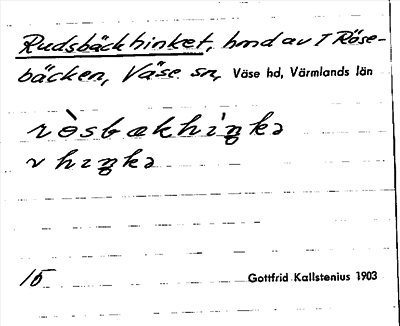 Rudsbäckhinket, hmd av T Röse-
bäcken, Väse sn, Väse hd, Värmlands län
rö̀sbækhìŋkə
v hɪŋkə
15 Gottfrid Kallstenius 1903